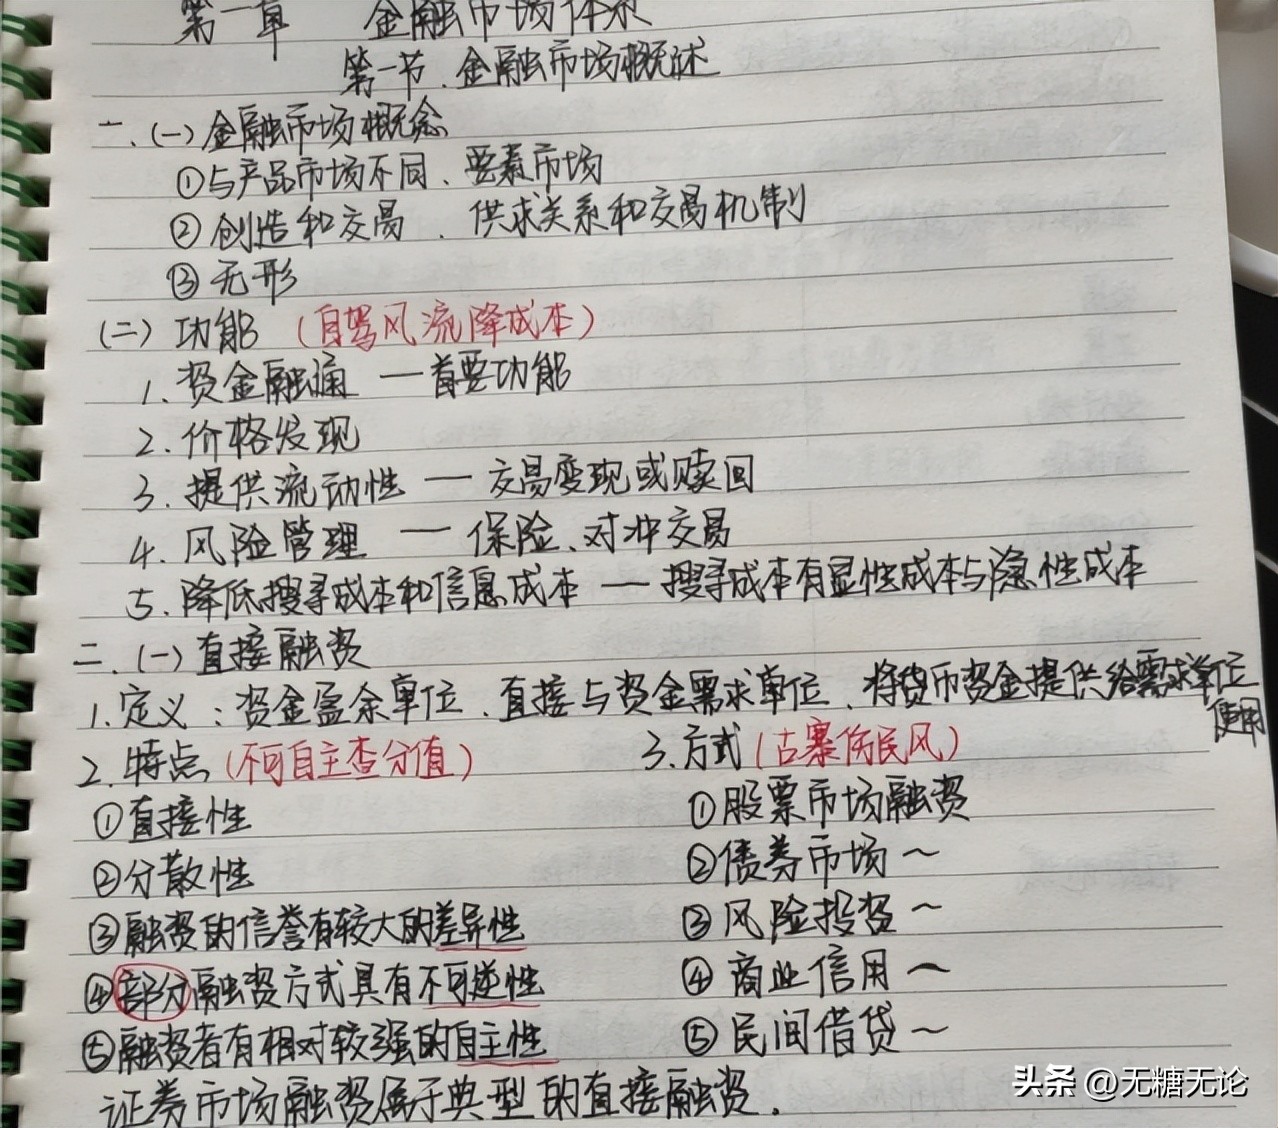 第一章 金融市场体系
第一节、金融市场概述
一、(一)金融市场概念
①与产品市场不同、要素市场
②创造和交易、供求关系和交易机制
③无形
(二)功能 (自驾风流降成本)
1.资金融通 — 首要功能
2.价格发现
3.提供流动性 — 交易变现或赎回
4.风险管理 — 保险、对冲交易
5.降低搜寻成本和信息成本 — 搜寻成本有显性成本与隐性成本
二、(一)直接融资
1.定义:资金盈余单位、直接与资金需求单位、将货币资金提供给需求单位使用
2.特点(不可自主查分值) 3.方式(古寨傍民风)
①直接性 ①股票市场融资
②分散性 ②债券市场~
③融资的信誉有较大的差异性 ③风险投资~
④部分融资方式具有不可逆性 ④商业信用~
⑤融资者有相对较强的自主性 ⑤民间借贷~
证券市场融资属于典型的直接融资.
头条 @无糖无论